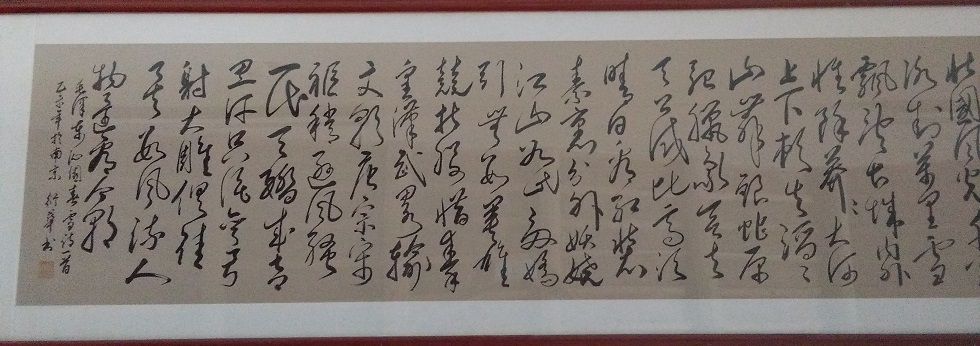 北國風光千
冰封萬里雪
飄望長城內外
惟餘莽〻大河
上下頓失滔〻
山舞銀蛇原
馳臘象欲與
天公試比高須
晴日看紅裝
素裹分外妖嬈
江山如此多嬌
引無數英雄
競折腰惜秦
皇漢武略輸
文彩唐宗宋
祖稍遜風騷
一代天驕成吉
思汗只識彎弓
射大雕俱往
矣數風流人
物還看今朝
毛澤東沁園春雪詩一首
年於南京 書